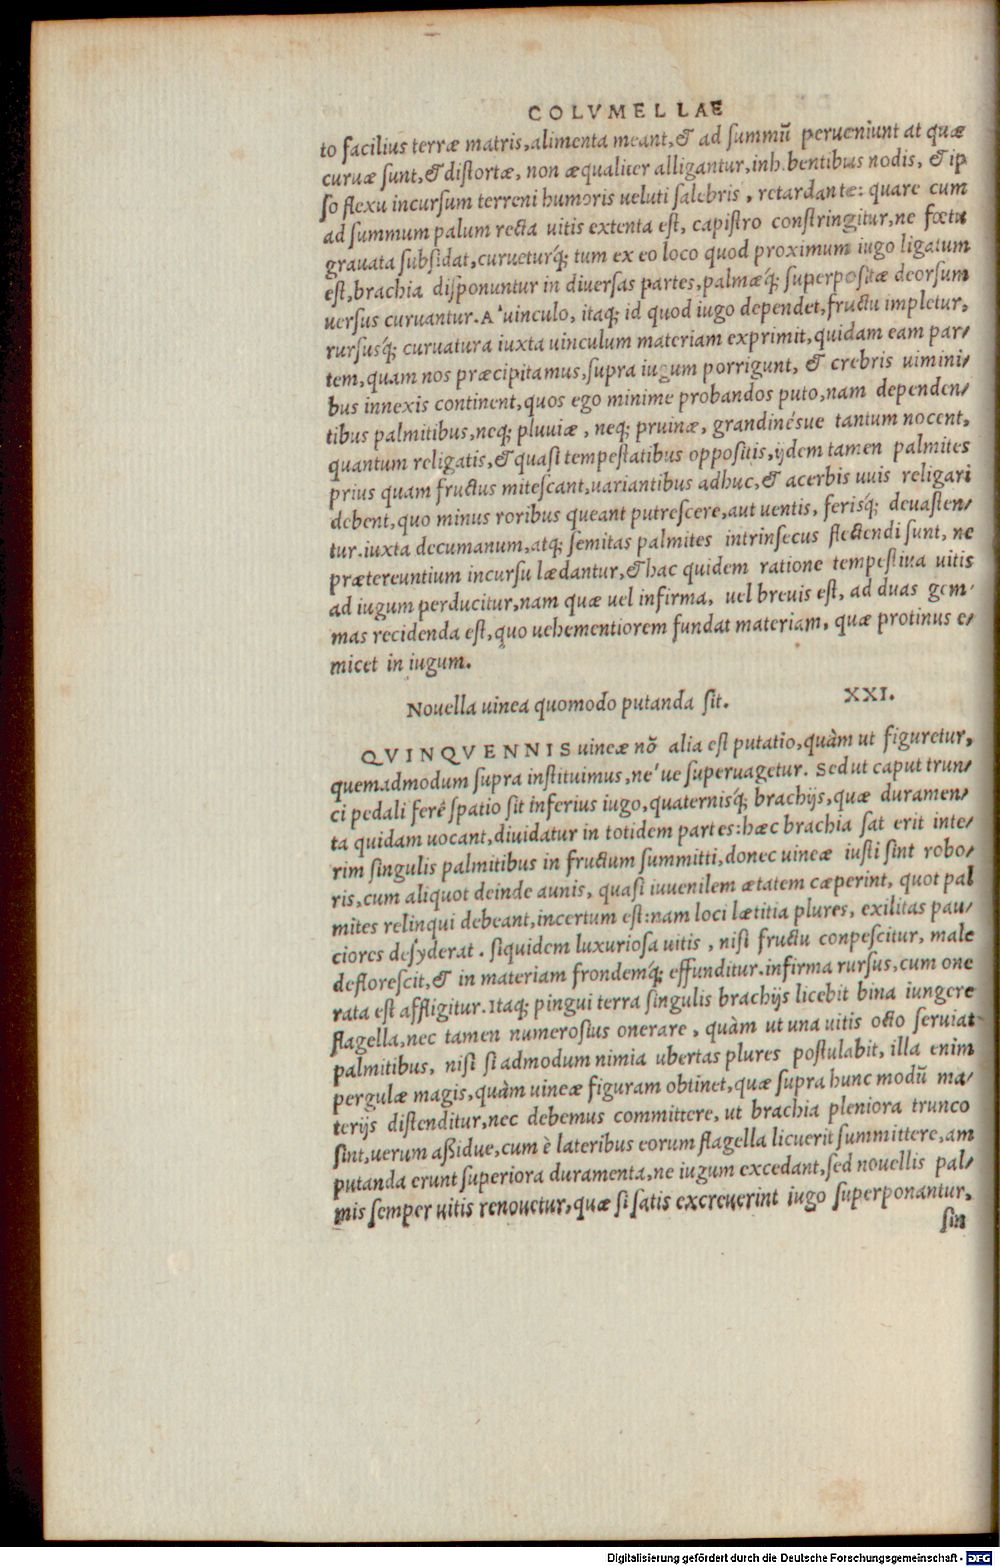 COLVMELLAE
to facilius terræ matris, alimenta meant, & ad summũ perueniunt at quæ
curuæ sunt, & distortæ, non æqualiter alligantur, inh bentibus nodis, & ip
so flexu incursum terreni humoris ueluti salebris, retardante: quare cum
ad summum palum recta uitis extenta est, capistro constringitur, ne fœtu
grauata subsidat, curueturq́; tum ex eo loco quod proximum iugo ligatum
est, brachia disponuntur in diuersas partes, palmæq́; superpositæ deorsum
uersus curuantur. A' uinculo, itaq; id quod iugo dependet, fructu impletur,
rursusq́; curuatura iuxta uinculum materiam exprimit, quidam eam par/
tem, quam nos præcipitamus, supra iugum porrigunt, & crebris uimini/
bus innexis continent, quos ego minime probandos puto, nam dependen/
tibus palmitibus, neq; pluuiæ, neq; pruinæ, grandinésue tantum nocent,
quantum religatis, & quasi tempestatibus oppositis, ijdem tamen palmites
prius quam fructus mitescant, uariantibus adhuc, & acerbis uuis religari
debent, quo minus roribus queant putrescere, aut uentis, ferisq́; deuasten/
tur. iuxta decumanum, atq; semitas palmites intrinsecus flectendi sunt, ne
prætereuntium incursu lædantur, & hac quidem ratione tempestiua uitis
ad iugum perducitur, nam quæ uel infirma, uel breuis est, ad duas gem/
mas recidenda est, quo uehementiorem fundat materiam, quæ protinus e/
micet in iugum.
Nouella uinea quomodo putanda sit. XXI.
QVINQVENNIS uineæ nõ alia est putatio, quàm ut figuretur,
quemadmodum supra instituimus, ne'ue superuagetur. Sed ut caput trun/
ci pedali ferè spatio sit inferius iugo, quaternisq́; brachijs, quæ duramen/
ta quidam uocant, diuidatur in totidem partes: hæc brachia sat erit inte/
rim singulis palmitibus in fructum summitti, donec uineæ iusti sint robo/
ris, cum aliquot deinde aunis, quasi iuuenilem ætatem cæperint, quot pal
mites relinqui debeant, incertum est: nam loci lætitia plures, exilitas pau/
ciores desyderat. siquidem luxuriosa uitis, nisi fructu conpescitur, male
deflorescit, & in materiam frondemq́; effunditur. infirma rursus, cum one
rata est affligitur. Itaq; pingui terra singulis brachijs licebit bina iungere
flagella, nec tamen numerosius onerare, quàm ut una uitis octo seruiat
palmitibus, nisi si admodum nimia ubertas plures postulabit, illa enim
pergulæ magis, quàm uineæ figuram obtinet, quæ supra hunc modũ ma/
terijs distenditur, nec debemus committere, ut brachia pleniora trunco
sint, uerum aßidue, cum è lateribus eorum flagella licuerit summittere, am
putanda erunt superiora duramenta, ne iugum excedant, sed nouellis pal/
mis semper uitis renouetur, quæ si satis excreuerint iugo superponantur,
sin
Digitalisierung gefördert durch die Deutsche Forschungsgemeinschaft - DFG